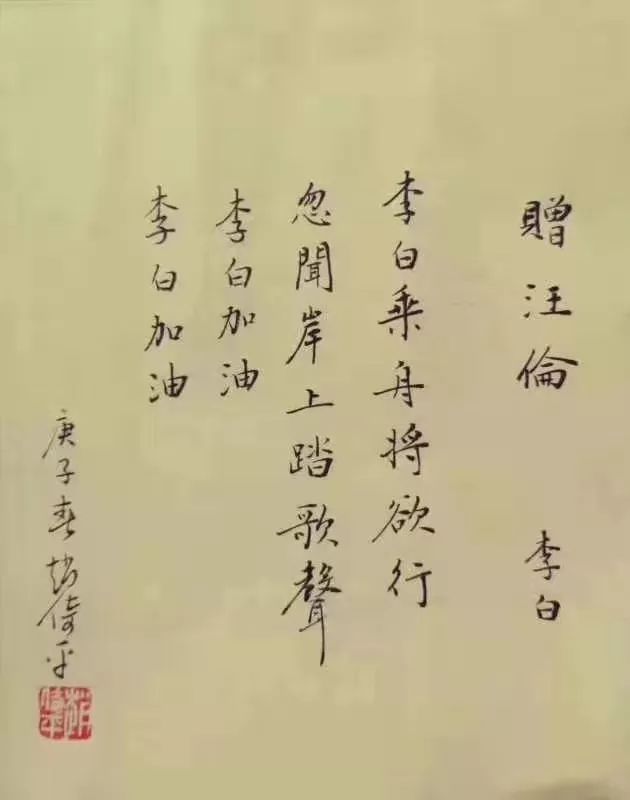 贈汪倫
李白
李白乘舟將欲行
忽聞岸上踏歌聲
李白加油
李白加油
庚子春趙倚平